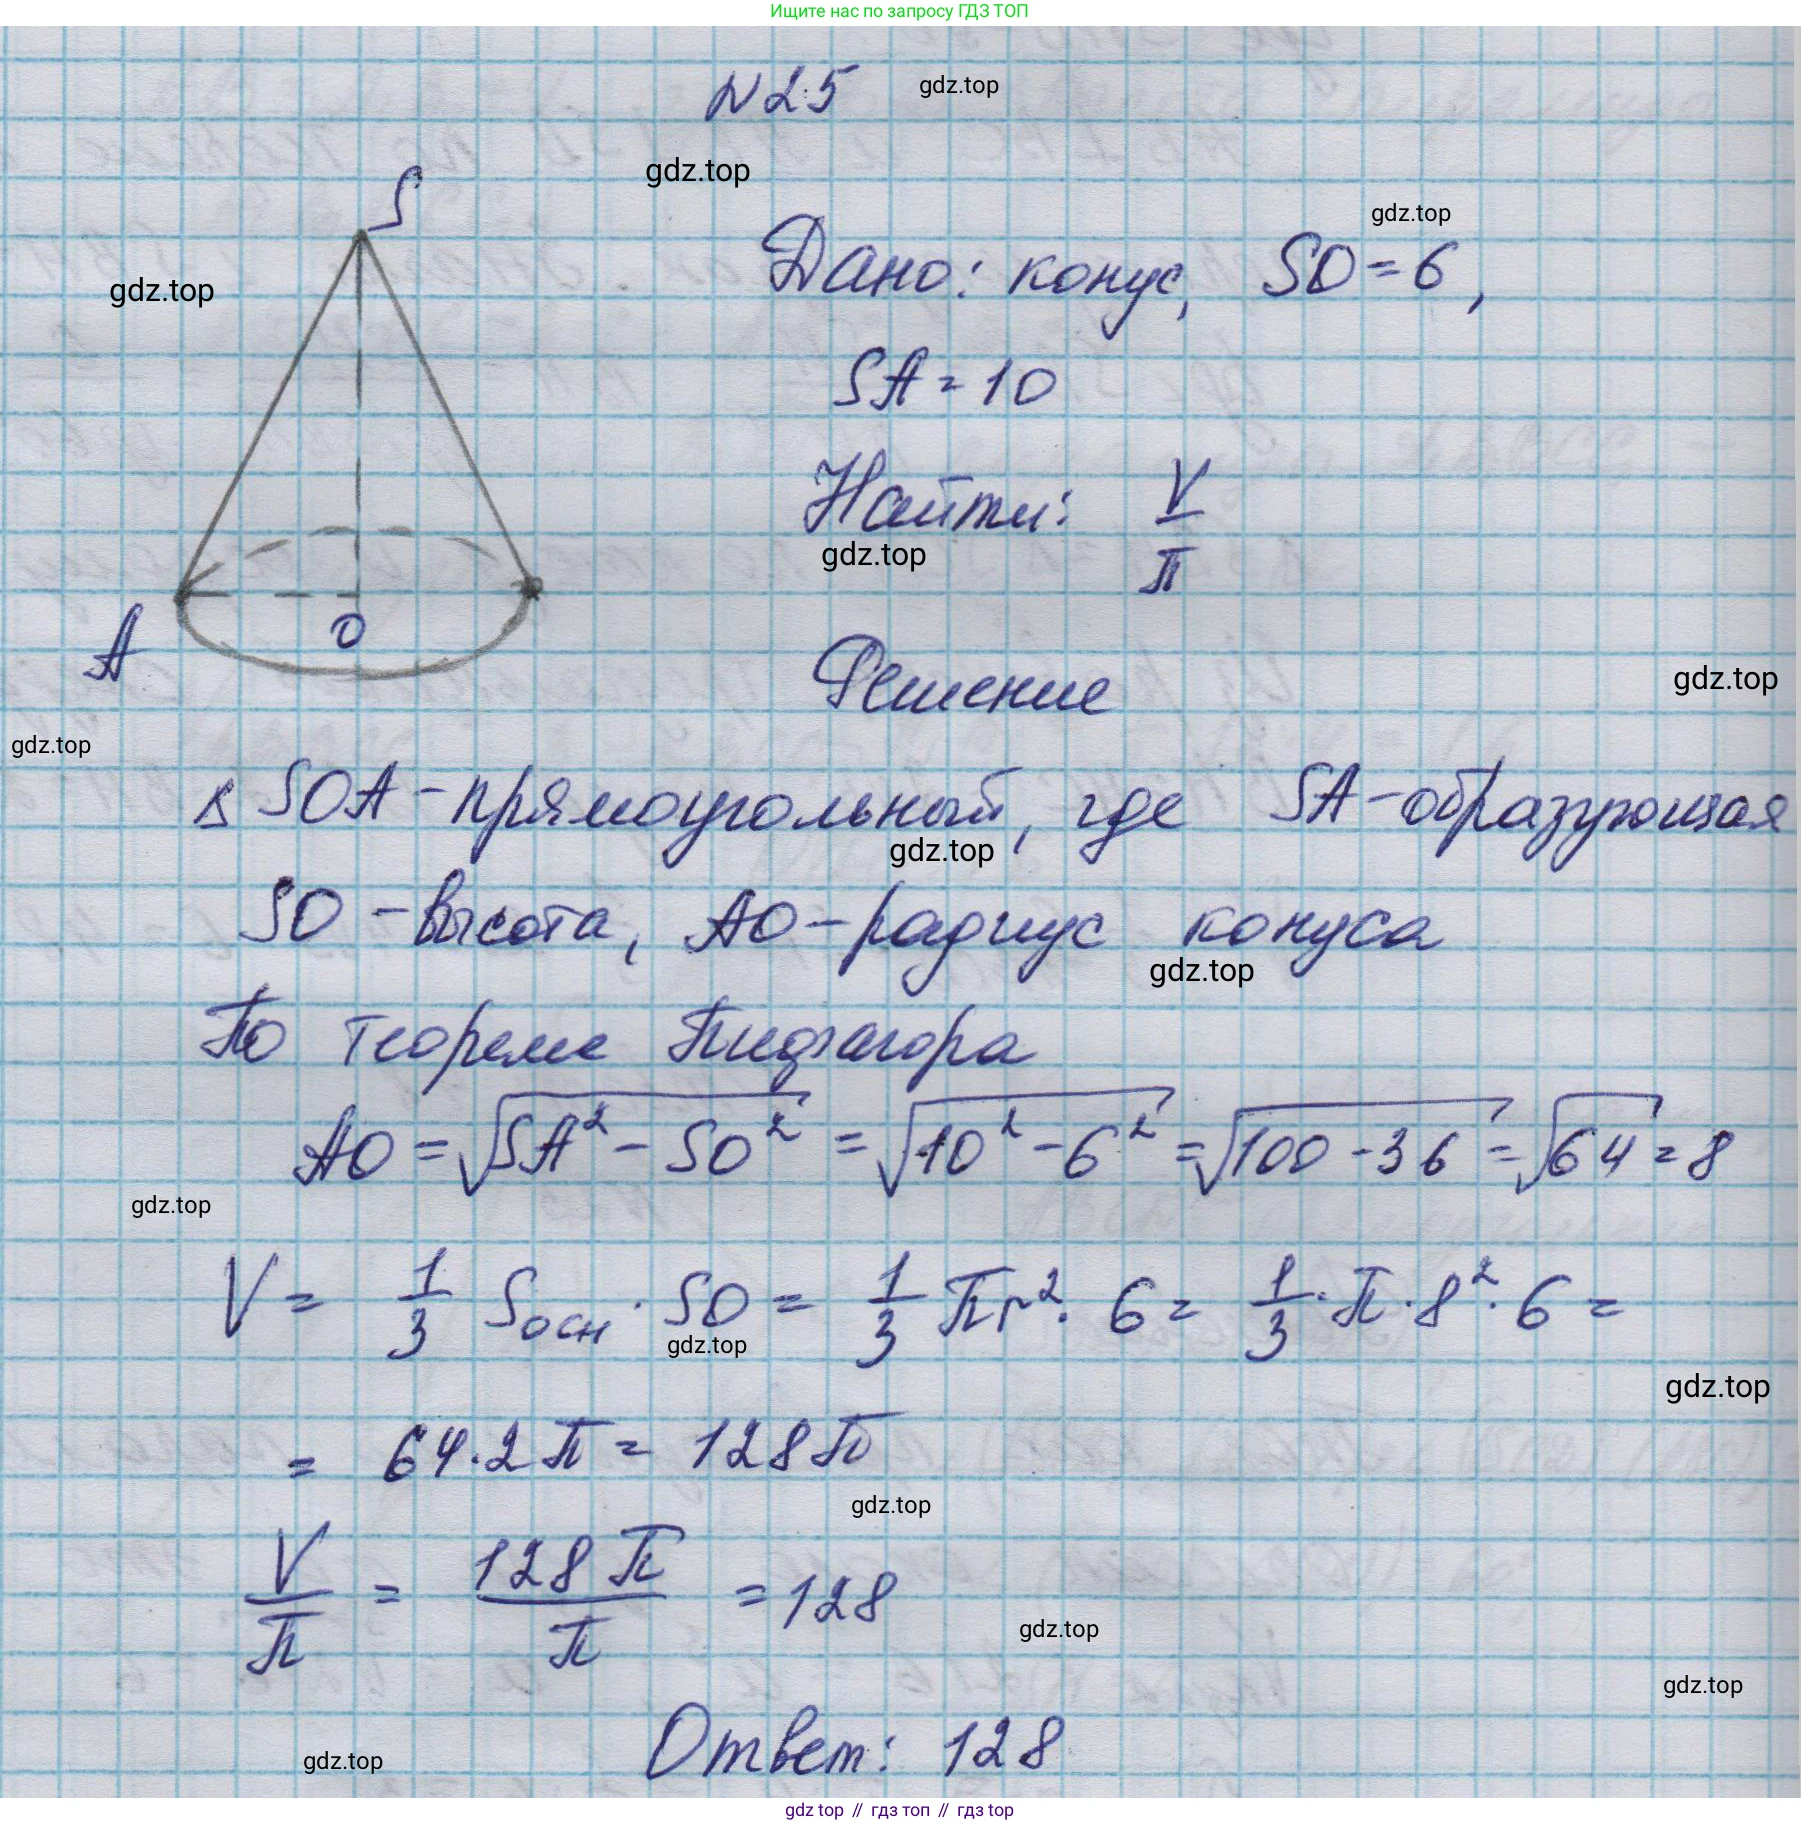 Ищите нас по запросу ГДЗ ТОП
№25 gdz.top
gdz.top
S
gdz.top
Дано: конус, SO = 6,
gdz.top
SA = 10
Найти: V/π
gdz.top
A
O
Решение
gdz.top
gdz.top
Δ SOA - прямоугольный, где SA - образующая
gdz.top
SO - высота, AO - радиус конуса
gdz.top
По теореме Пифагора
AO = √(SA² - SO²) = √(10² - 6²) = √(100 - 36) = √64 = 8
gdz.top
V = 1/3 Sосн · SO = 1/3 πr² · 6 = 1/3 · π · 8² · 6 =
gdz.top
gdz.top
= 64 · 2π = 128π
gdz.top
V/π = 128π/π = 128
gdz.top
gdz.top
Ответ: 128
gdz.top
gdz top // гдз топ // гдз top